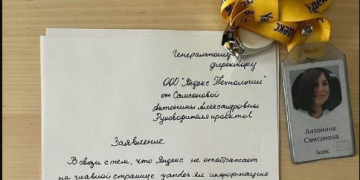 Генеральному
директору
ООО "Яндекс Технологии"
от Самсоновой
Антонины Александровны
Руководителя проектов
Заявление
В связи с тем, что Яндекс не отображает
на главной странице yandex.ru информацию
Яндекс
Антонина
Самсонова